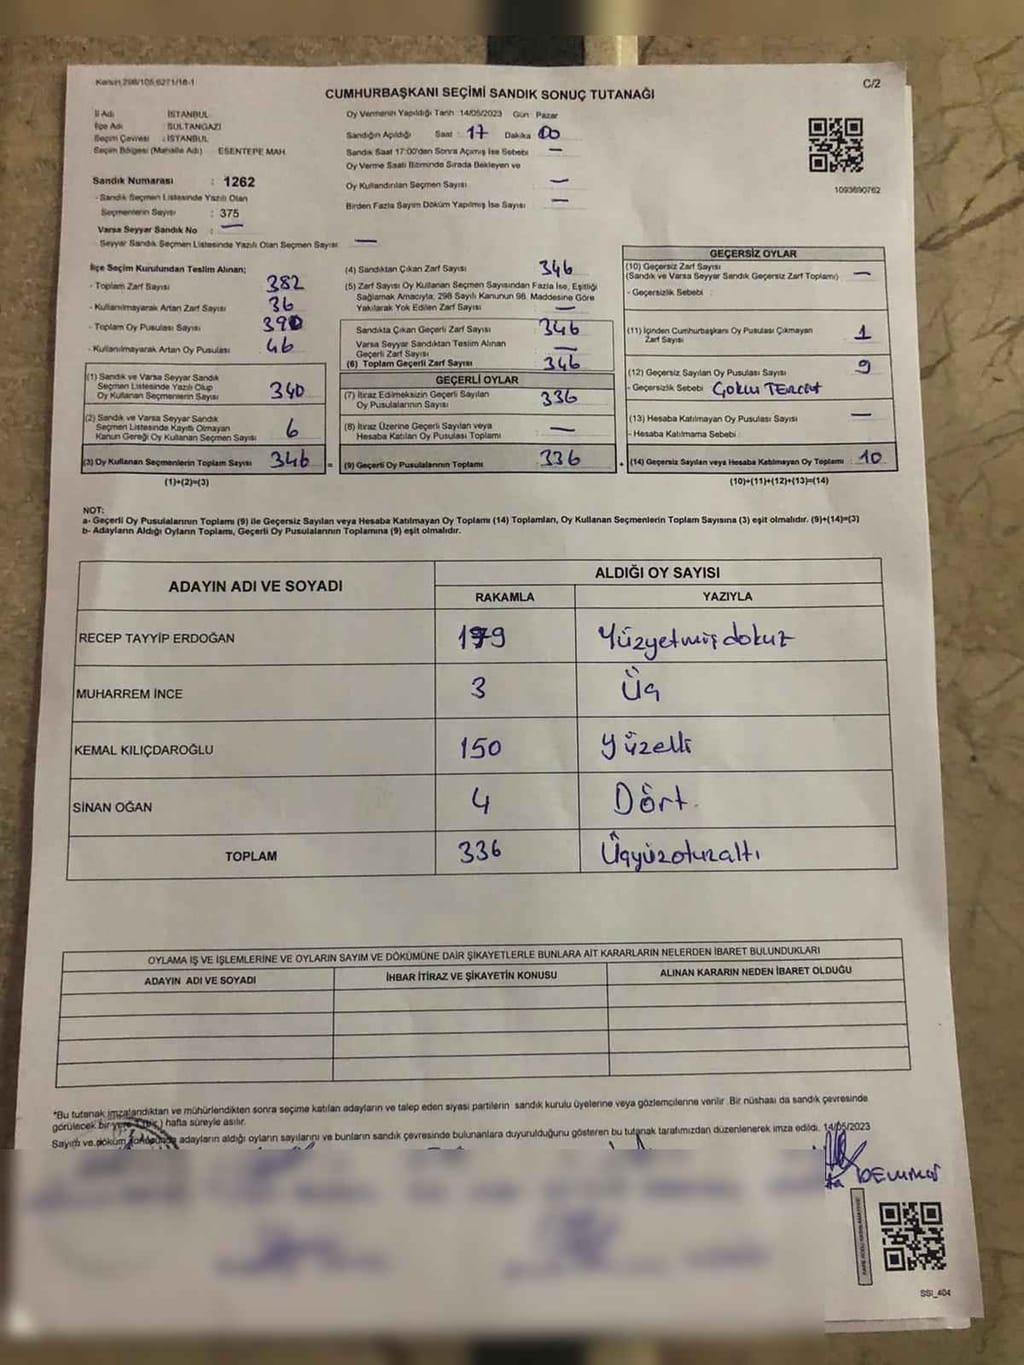 Kanun 298/105 6271/18-1
C/2
CUMHURBAŞKANI SEÇİMİ SANDIK SONUÇ TUTANAĞI
İl Adı : İSTANBUL
İlçe Adı : SULTANGAZİ
Seçim Çevresi : İSTANBUL
Seçim Bölgesi (Mahalle Adı) : ESENTEPE MAH.
Sandık Numarası : 1262
- Sandık Seçmen Listesinde Yazılı Olan
Seçmenlerin Sayısı : 375
Varsa Seyyar Sandık No : —
Seyyar Sandık Seçmen Listesinde Yazılı Olan Seçmen Sayısı : —
Oy Vermenin Yapıldığı Tarih :14/05/2023 Gün : Pazar
Sandığın Açıldığı Saat : 17 Dakika 00
Sandık Saat 17:00'den Sonra Açılmış İse Sebebi —
Oy Verme Saati Bitiminde Sırada Bekleyen ve
Oy Kullandırılan Seçmen Sayısı —
Birden Fazla Sayım Döküm Yapılmış İse Sayısı —
1093690762
İlçe Seçim Kurulundan Teslim Alınan;
- Toplam Zarf Sayısı : 382
- Kullanılmayarak Artan Zarf Sayısı : 36
- Toplam Oy Pusulası Sayısı : 390
- Kullanılmayarak Artan Oy Pusulası : 46
(1) Sandık ve Varsa Seyyar Sandık
Seçmen Listesinde Yazılı Olup
Oy Kullanan Seçmenlerin Sayısı : 340
(2) Sandık ve Varsa Seyyar Sandık
Seçmen Listesinde Kayıtlı Olmayan
Kanun Gereği Oy Kullanan Seçmen Sayısı : 6
(3) Oy Kullanan Seçmenlerin Toplam Sayısı : 346
(1)+(2)=(3)
(4) Sandıktan Çıkan Zarf Sayısı : 346
(5) Zarf Sayısı Oy Kullanan Seçmen Sayısından Fazla İse, Eşitliği
Sağlamak Amacıyla; 298 Sayılı Kanunun 98. Maddesine Göre
Yakılarak Yok Edilen Zarf Sayısı : —
Sandıkta Çıkan Geçerli Zarf Sayısı : 346
Varsa Seyyar Sandıktan Teslim Alınan
Geçerli Zarf Sayısı : —
(6) Toplam Geçerli Zarf Sayısı : 346
GEÇERLİ OYLAR
(7) İtiraz Edilmeksizin Geçerli Sayılan
Oy Pusulalarının Sayısı : 336
(8) İtiraz Üzerine Geçerli Sayılan veya
Hesaba Katılan Oy Pusulası Toplamı : —
= (9) Geçerli Oy Pusulalarının Toplamı : 336
GEÇERSİZ OYLAR
(10) Geçersiz Zarf Sayısı
(Sandık ve Varsa Seyyar Sandık Geçersiz Zarf Toplamı) : —
- Geçersizlik Sebebi :
(11) İçinden Cumhurbaşkanı Oy Pusulası Çıkmayan
Zarf Sayısı : 1
(12) Geçersiz Sayılan Oy Pusulası Sayısı : 9
- Geçersizlik Sebebi : ÇOKLU TERCİH
(13) Hesaba Katılmayan Oy Pusulası Sayısı : —
- Hesaba Katılmama Sebebi :
+ (14) Geçersiz Sayılan veya Hesaba Katılmayan Oy Toplamı : 10
(10)+(11)+(12)+(13)=(14)
NOT:
a- Geçerli Oy Pusulalarının Toplamı (9) ile Geçersiz Sayılan veya Hesaba Katılmayan Oy Toplamı (14) Toplamları, Oy Kullanan Seçmenlerin Toplam Sayısına (3) eşit olmalıdır. (9)+(14)=(3)
b- Adayların Aldığı Oyların Toplamı, Geçerli Oy Pusulalarının Toplamına (9) eşit olmalıdır.
ADAYIN ADI VE SOYADI
ALDIĞI OY SAYISI
RAKAMLA YAZIYLA
RECEP TAYYİP ERDOĞAN 179 Yüzyetmişdokuz
MUHARREM İNCE 3 Üç
KEMAL KILIÇDAROĞLU 150 Yüzelli
SİNAN OĞAN 4 Dört.
TOPLAM 336 Üçyüzotuzaltı
OYLAMA İŞ VE İŞLEMLERİNE VE OYLARIN SAYIM VE DÖKÜMÜNE DAİR ŞİKAYETLERLE BUNLARA AİT KARARLARIN NELERDEN İBARET BULUNDUKLARI
ADAYIN ADI VE SOYADI İHBAR İTİRAZ VE ŞİKAYETİN KONUSU ALINAN KARARIN NEDEN İBARET OLDUĞU
*Bu tutanak imzalandıktan ve mühürlendikten sonra seçime katılan adayların ve talep eden siyasi partilerin sandık kurulu üyelerine veya gözlemcilerine verilir. Bir nüshası da sandık çevresinde
görülecek bir yere 1 (bir) hafta süreyle asılır.
Sayım ve döküm sonucunda adayların aldığı oyların sayılarını ve bunların sandık çevresinde bulunanlara duyurulduğunu gösteren bu tutanak tarafımızdan düzenlenerek imza edildi. 14/05/2023
SSI_404